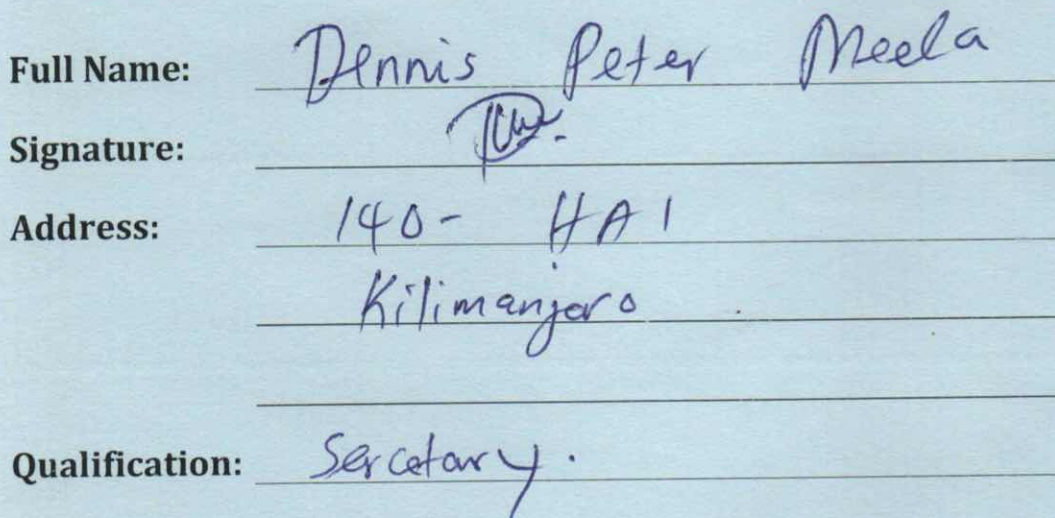 Full Name: Dennis Peter Meela
Signature:
Address: 140 - HAI
Kilimanjaro
Qualification: Sercetary.